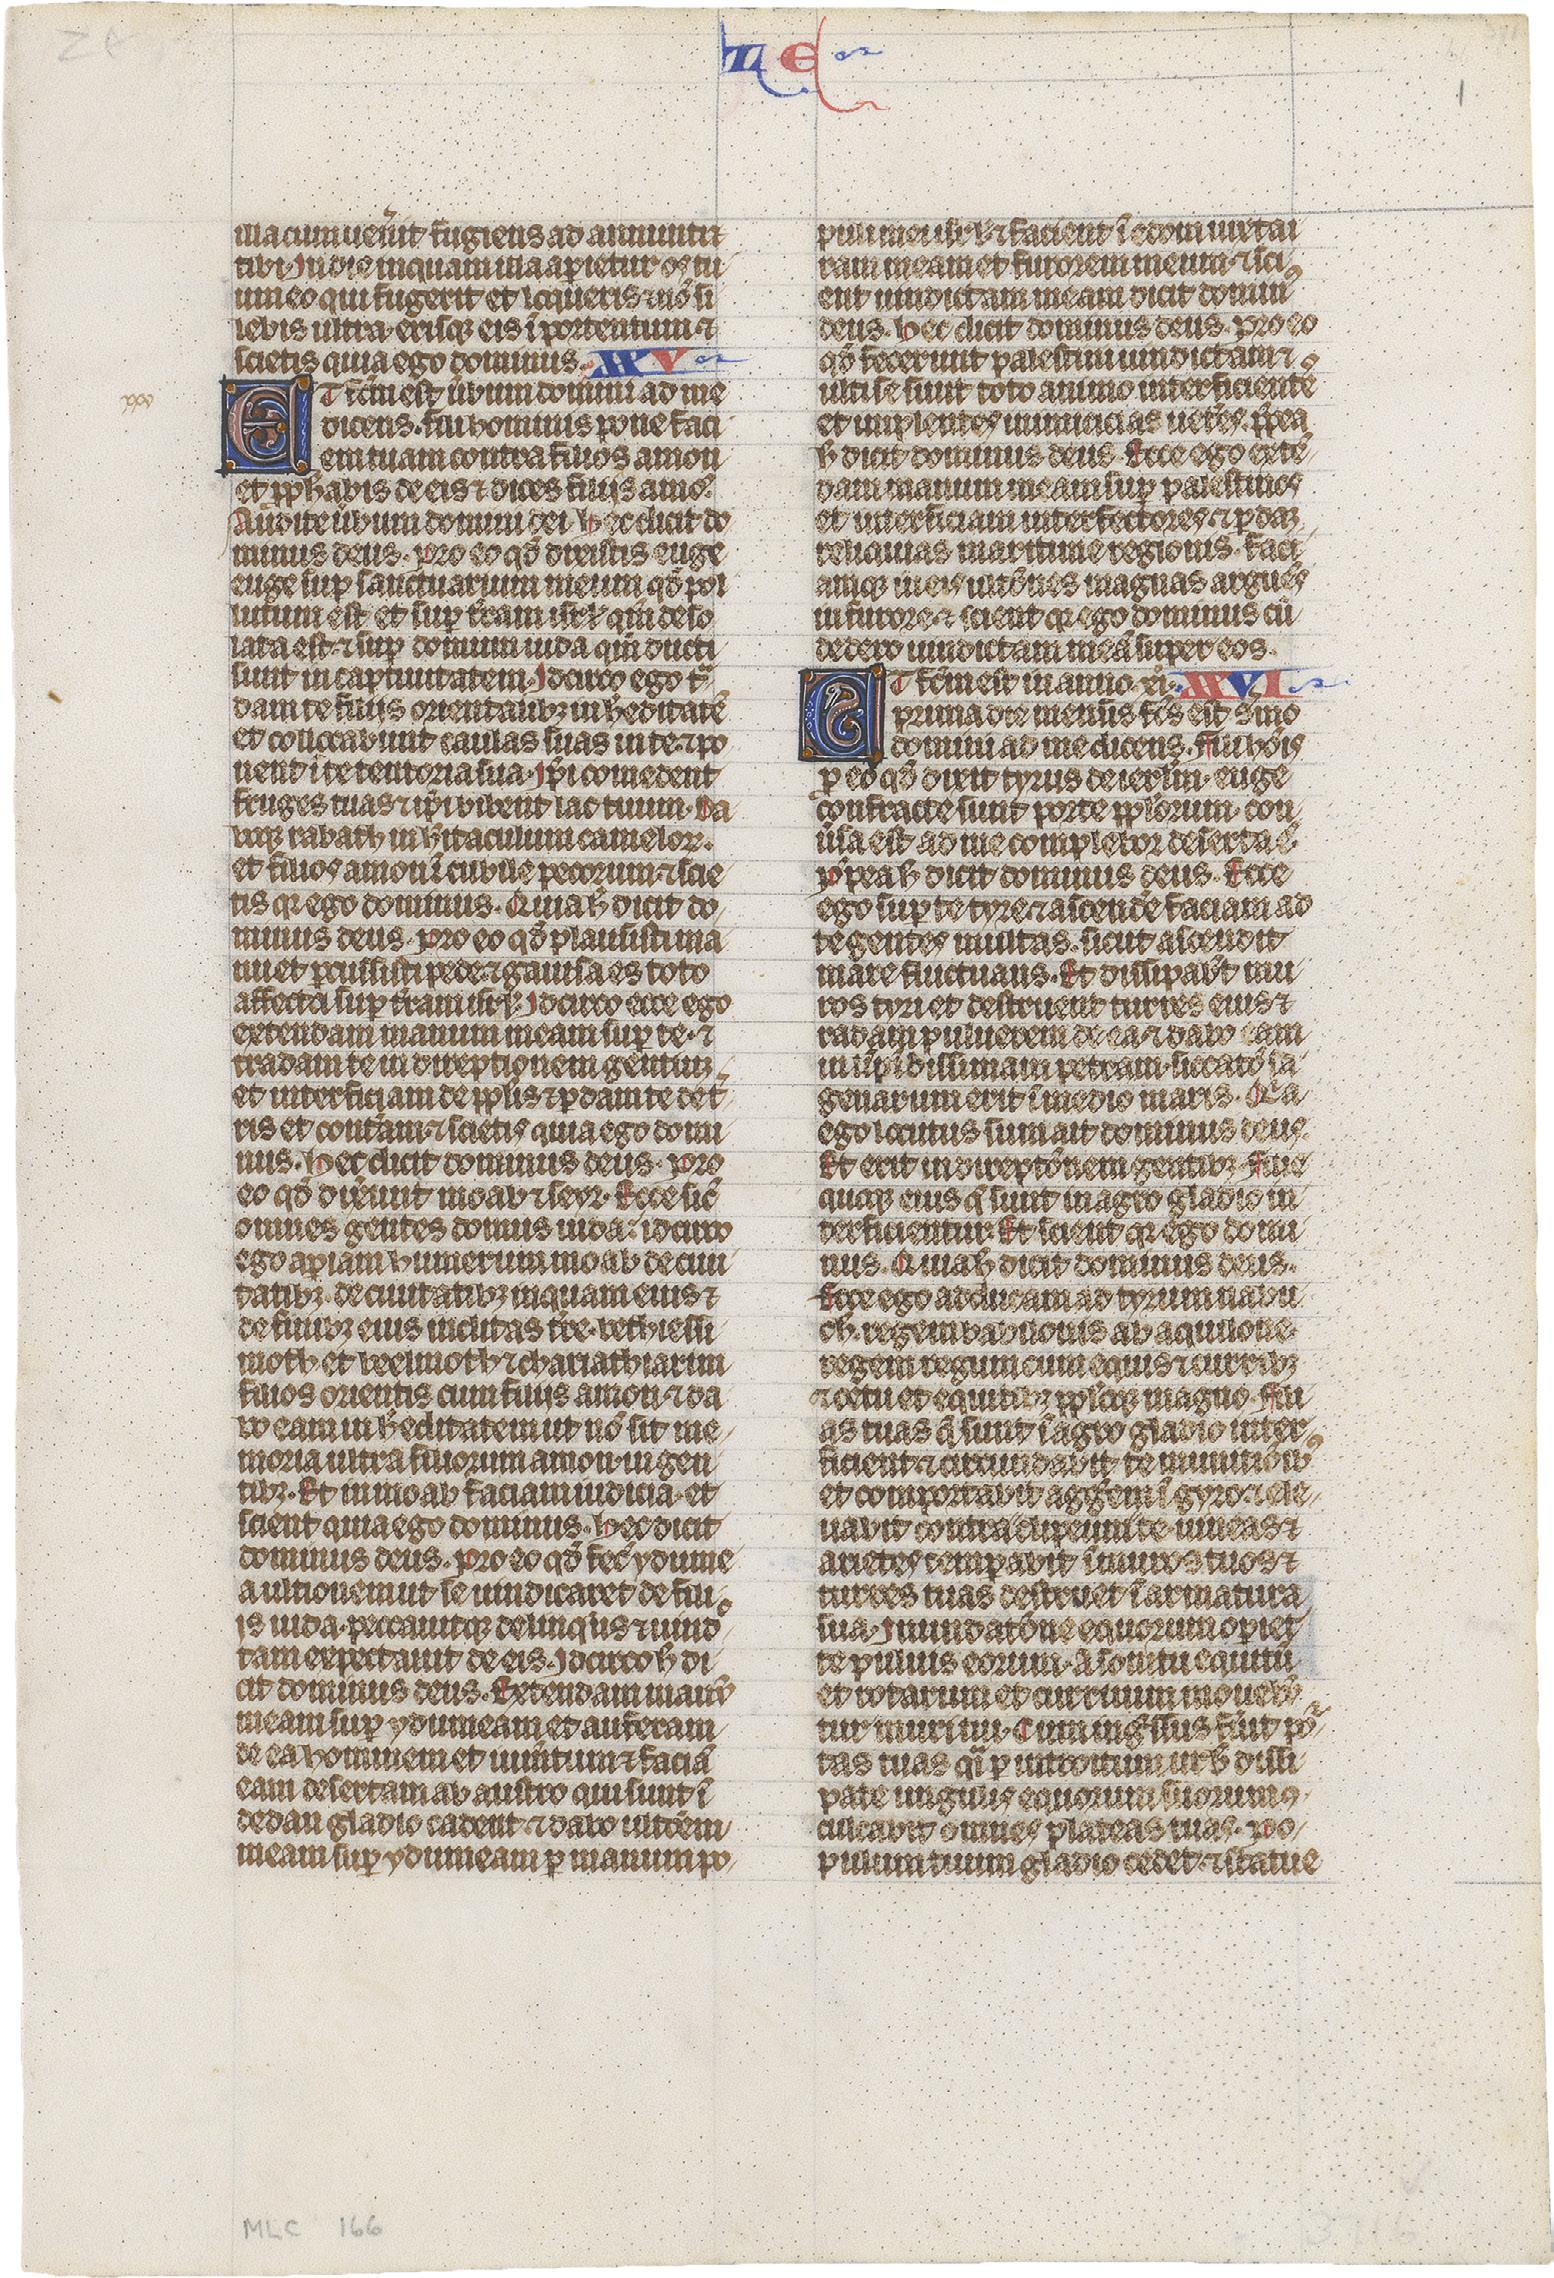 ZE
illa cum ueñit fugiens ad annuntiet
tibi. In die inquam illa apietur os tu
um eo qui fugerit et loqueris ⁊ nō si
lebis ultra. erisqꝫ eis ī portentum ⁊
scietis quia ego dominus. XXV
ET fcm̄ est ūbum domini ad me
dicens. fili hominis pone faci
em tuam contra filios amon
et ꝓphabis de eis ⁊ dices filijs amō.
Audite ūbum domini dei. Hec dicit do
minus deus. Pro eo qd̄ dixistis euge
euge suꝑ sanctuarium meum qd̄ pol
lutum est et suꝑ tr̄am isrl̄ qm̄ deso
lata est. ⁊ suꝑ domum iuda qm̄ ducti
sunt in captiuitatem. Idcirco ego tͣ
dam te filijs orientalibꝫ in h̄editatē
et collocabunt caulas suas in te. ⁊ po
nent ī te tentoria sua. Ip̄i comedent
fruges tuas ⁊ ip̄i bibent lac tuum. Da
boqꝫ rabath in h̄itaculum cameloꝝ.
et filios amon ī cubile pecorum ⁊ scie
tis qꝛ ego dominus. Quia h̄ dicit do
minus deus. Pro eo qd̄ plausisti ma
nu et ꝑcussisti pede ⁊ gauisa es toto
affectu suꝑ tr̄am isrl̄. Idcirco ecce ego
extendam manum meam suꝑ te. ⁊
tradam te in direptionem gentium
et interficiam de ppl̄is ⁊ ꝑdam te de t̄
ris et contam̄. ⁊ scietis quia ego domi
nus. Hec dicit dominus deus. Pro
eo qd̄ dix̄unt moab ⁊ seyr. Ecce sic̄
omnes gentes domus iuda. idcirco
ego apiam humerum moab de ciui
tatibꝫ. de ciuitatibꝫ inquam eius ⁊
de finibꝫ eius inclitas tr̄e. bethiessi
moth et beelmoth ⁊ chariathiarim
filios orientis cum filijs amon. ⁊ da
bo eam in h̄editatem ut nō sit me
moria ultra filiorum amon in gen
tibꝫ. Et in moab faciam iudicia. et
scient quia ego dominus. Hec dicit
dominus deus. Pro eo qd̄ fec̄ ydume
a ultionem ut se uindicaret de fili
is iuda. peccauitqꝫ delinqͥns ⁊ uindc̄
tam expectauit de eis. Idcirco h̄ di
cit dominus deus. Extendam manū
meam suꝑ ydumeam et auferam
de ea hominem et iumtum ⁊ faciā
eam desertam ab austro qui sunt ī
dedan gladio cadent. ⁊ dabo ultōem
meam suꝑ ydumeam ꝑ manum po
puli mei isrl̄ ⁊ facient ī edom iuxta i
ram meam et furorem meum. ⁊ sci
ent uindictam meam dicit dominꝰ
deus. Hec dicit dominus deus. Pro eo
qd̄ fecerunt palestini uindictam ⁊
ulti se sunt toto animo interficientes
et implentes inimicicias ueteres. ꝓp̄ea
h̄ dicit dominus deus. Ecce ego extē
dam manum meam suꝑ palestinos
et interficiam interfectores. ⁊ ꝑdam
reliquias maritime regionis. faci
amqꝫ in eis ultōnes magnas arguēs
in furore. ⁊ scient qꝛ ego dominus cū
dedero uindictam meā super eos.
ET fcm̄ est in anno. xi. XXVI
prima die mensis fcs̄ est ẜmo
domini ad me dicens. fili hōis
ꝓ eo qd̄ dixit tyrus de ierl̄m. euge
confracte sunt porte ppl̄orum. con
ūsa est ad me complebor deserta ē
ꝓp̄ea h̄ dicit dominus deus. Ecce
ego suꝑ te tyre ⁊ ascende faciam ad
te gentes multas. sicut ascendit
mare fluctuans. Et dissipabt̄ mu
ros tyri et destruent turres eius ⁊
radam puluerem de ea ⁊ dabo eam
in lip̄idissimam petram. siccatō sa
genarum erit ī medio maris. Quia
ego locutus sum ait dominus deus.
Et erit in direptōnem gentibꝫ. filie
quoqꝫ eius q̄ sunt in agro gladio in
terficientur. Et scient qꝛ ego domi
nus. Quia h̄ dicit dominus deus.
Ecce ego adducam ad tyrum nabu
ch. regem babilonis ab aquilone.
regem regum cum equis ⁊ curribꝫ
⁊ cetu et equitibꝫ ppl̄oqꝫ magno. fili
as tuas q̄ sunt ī agro gladio inter
ficient. ⁊ circundabit te munitōibꝰ
et comportabit aggēm ī gyro. ⁊ ele
uabit contra clipeum te. uineas ⁊
arietes tempabit ī muros tuos ⁊
turres tuas destruet ī armatura
sua. Inundatōne equorum opiet
te puluis eorum. A sonitu equitū
et rotarum et curruum mouebū
tur muri tui. Cum ingr̄ssus fūit poͬ
tas tuas qͣi ꝑ introitum urb̄ dissi
pate ungulis equorum suorum 9
culcabit omnes plateas tuas. Po
pulum tuum gladio cedet. ⁊ statue
MLC 166